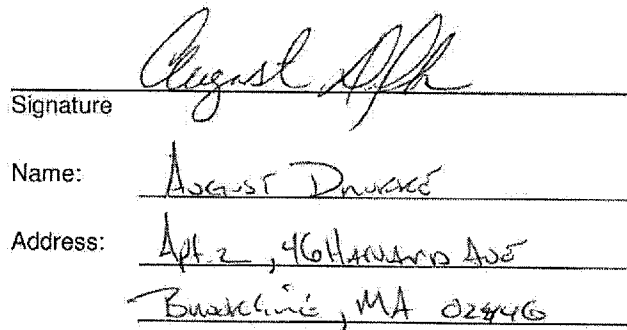 August
Signature
Name: August
Address: Apt. 2, 46 Harvard Ave
Brookline, MA 02446